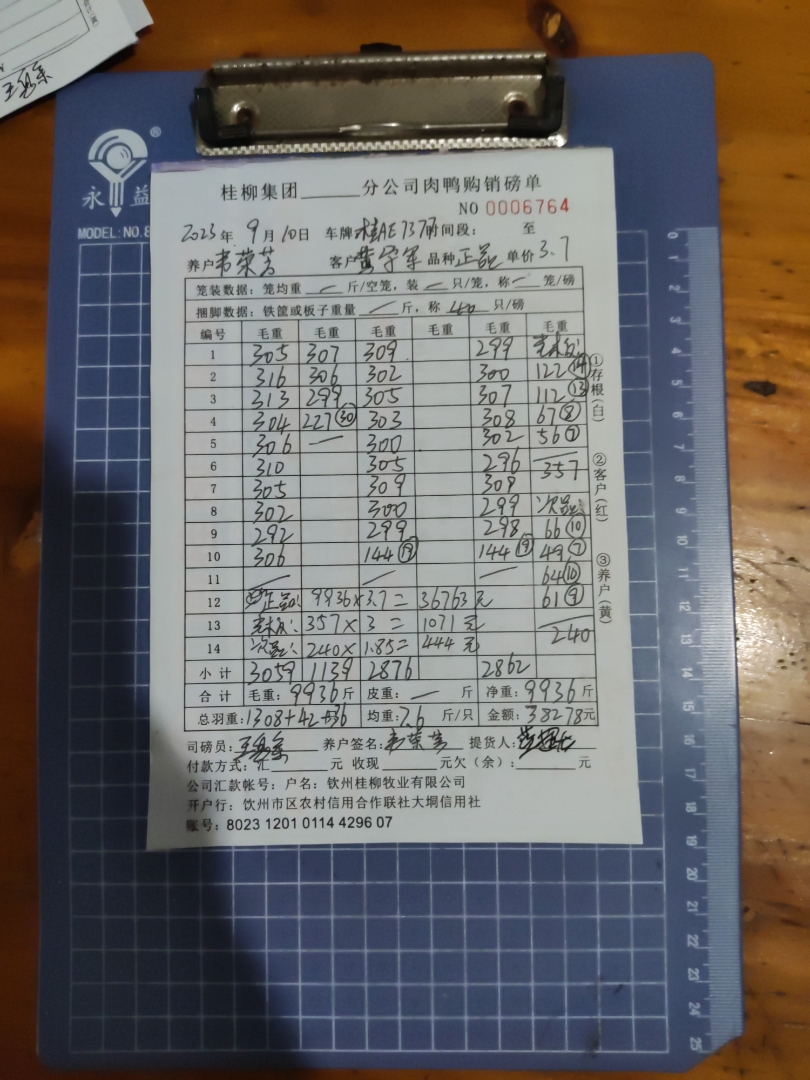 永 益
®
MODEL: NO.8
桂柳集团______分公司肉鸭购销磅单
NO 0006764
2023年 9月10日 车牌桂AE737 时间段: 至
养户韦荣芳 客户黄学军 品种正品 单价3.7
笼装数据: 笼均重 — 斤/空笼, 装 — 只/笼, 称 — 笼/磅
捆脚数据: 铁筐或板子重量 — 斤, 称 40 只/磅
编号 毛重 毛重 毛重 毛重 毛重 毛重
1 305 307 309 299
2 316 306 302 300 122⑭
3 313 299 305 307 112⑬
4 304 227㉚ 303 308 67⑧
5 306 — 300 302 56⑦
6 310 305 296 357
7 305 309 309
8 302 300 299 次品
9 292 299 298 66⑩
10 306 144⑲ 144⑲ 49⑦
11 — — — 64⑩
12 正品: 9936×3.7= 36763元 61⑨
13 357×3= 1071元 240
14 次品: 240×1.85= 444元
小计 3059 1139 2876 2862
合计 毛重: 9936斤 皮重: — 斤 净重: 9936斤
总羽重: 1308+42+36 均重: 7.6 斤/只 金额: 38278元
司磅员: 养户签名: 韦荣芳 提货人:
付款方式: 汇______元 收现______元欠(余):______元
公司汇款帐号: 户名: 钦州桂柳牧业有限公司
开户行: 饮州市区农村信用合作联社大垌信用社
账号: 8023 1201 0114 4296 07
①存根(白)
②客户(红)
③养户(黄)
0
1
2
3
4
5
6
7
8
9
10
11
12
13
14
15
16
17
18
19
20
21
22
23
24
25